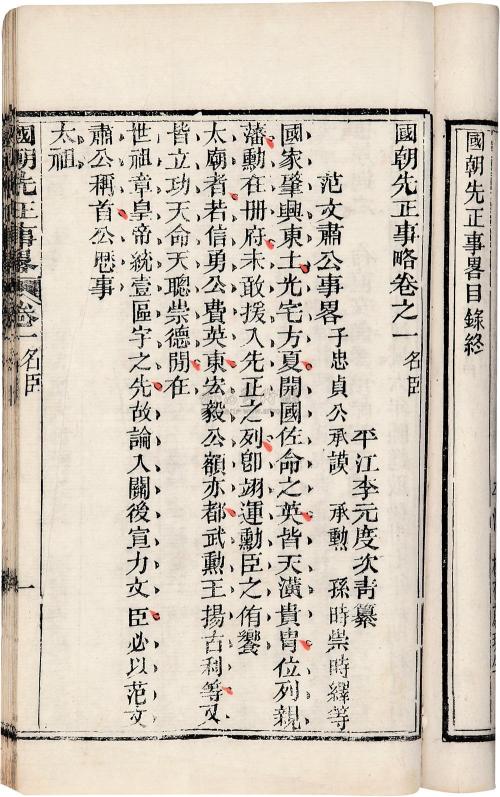 國朝先正事畧目錄終
國朝先正事略卷之一 名臣
平江李元度次青纂
范文肅公事畧 子忠貞公承謨 承勲 孫時崇時繹等
國家肇興東土光宅方夏開國佐命之英皆天潢貴胄位列親
藩勳在冊府未敢援入先正之列卽翊運勳臣之侑饗
太廟者若信勇公費英東宏毅公額亦都武勲王揚古利等又
皆立功天命天聰崇德閒在
世祖章皇帝統壹區宇之先故論入關後宣力文臣必以范文
肅公稱首公歴事
太祖
國朝先正事畧 卷一 名臣
一